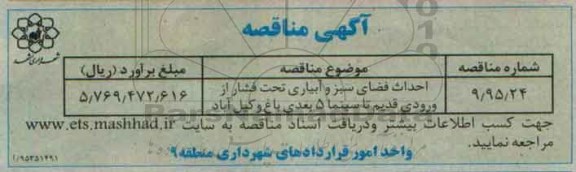 آگهی مناقصه
شهرداری مشهد
شماره مناقصه موضوع مناقصه مبلغ برآورد (ریال)
۹/۹۵/۲۴ احداث فضای سبز و آبیاری تحت فشار از ۵/۷۶۹/۴۷۲/۶۱۶
ورودی قدیم تا سینما ۵ بعدی باغ وکیل آباد
جهت کسب اطلاعات بیشتر ودریافت اسناد مناقصه به سایت www.ets.mashhad.ir
مراجعه نمایید.
واحد امور قراردادهای شهرداری منطقه۹
۱/۹۵۳۵۱۴۹۱